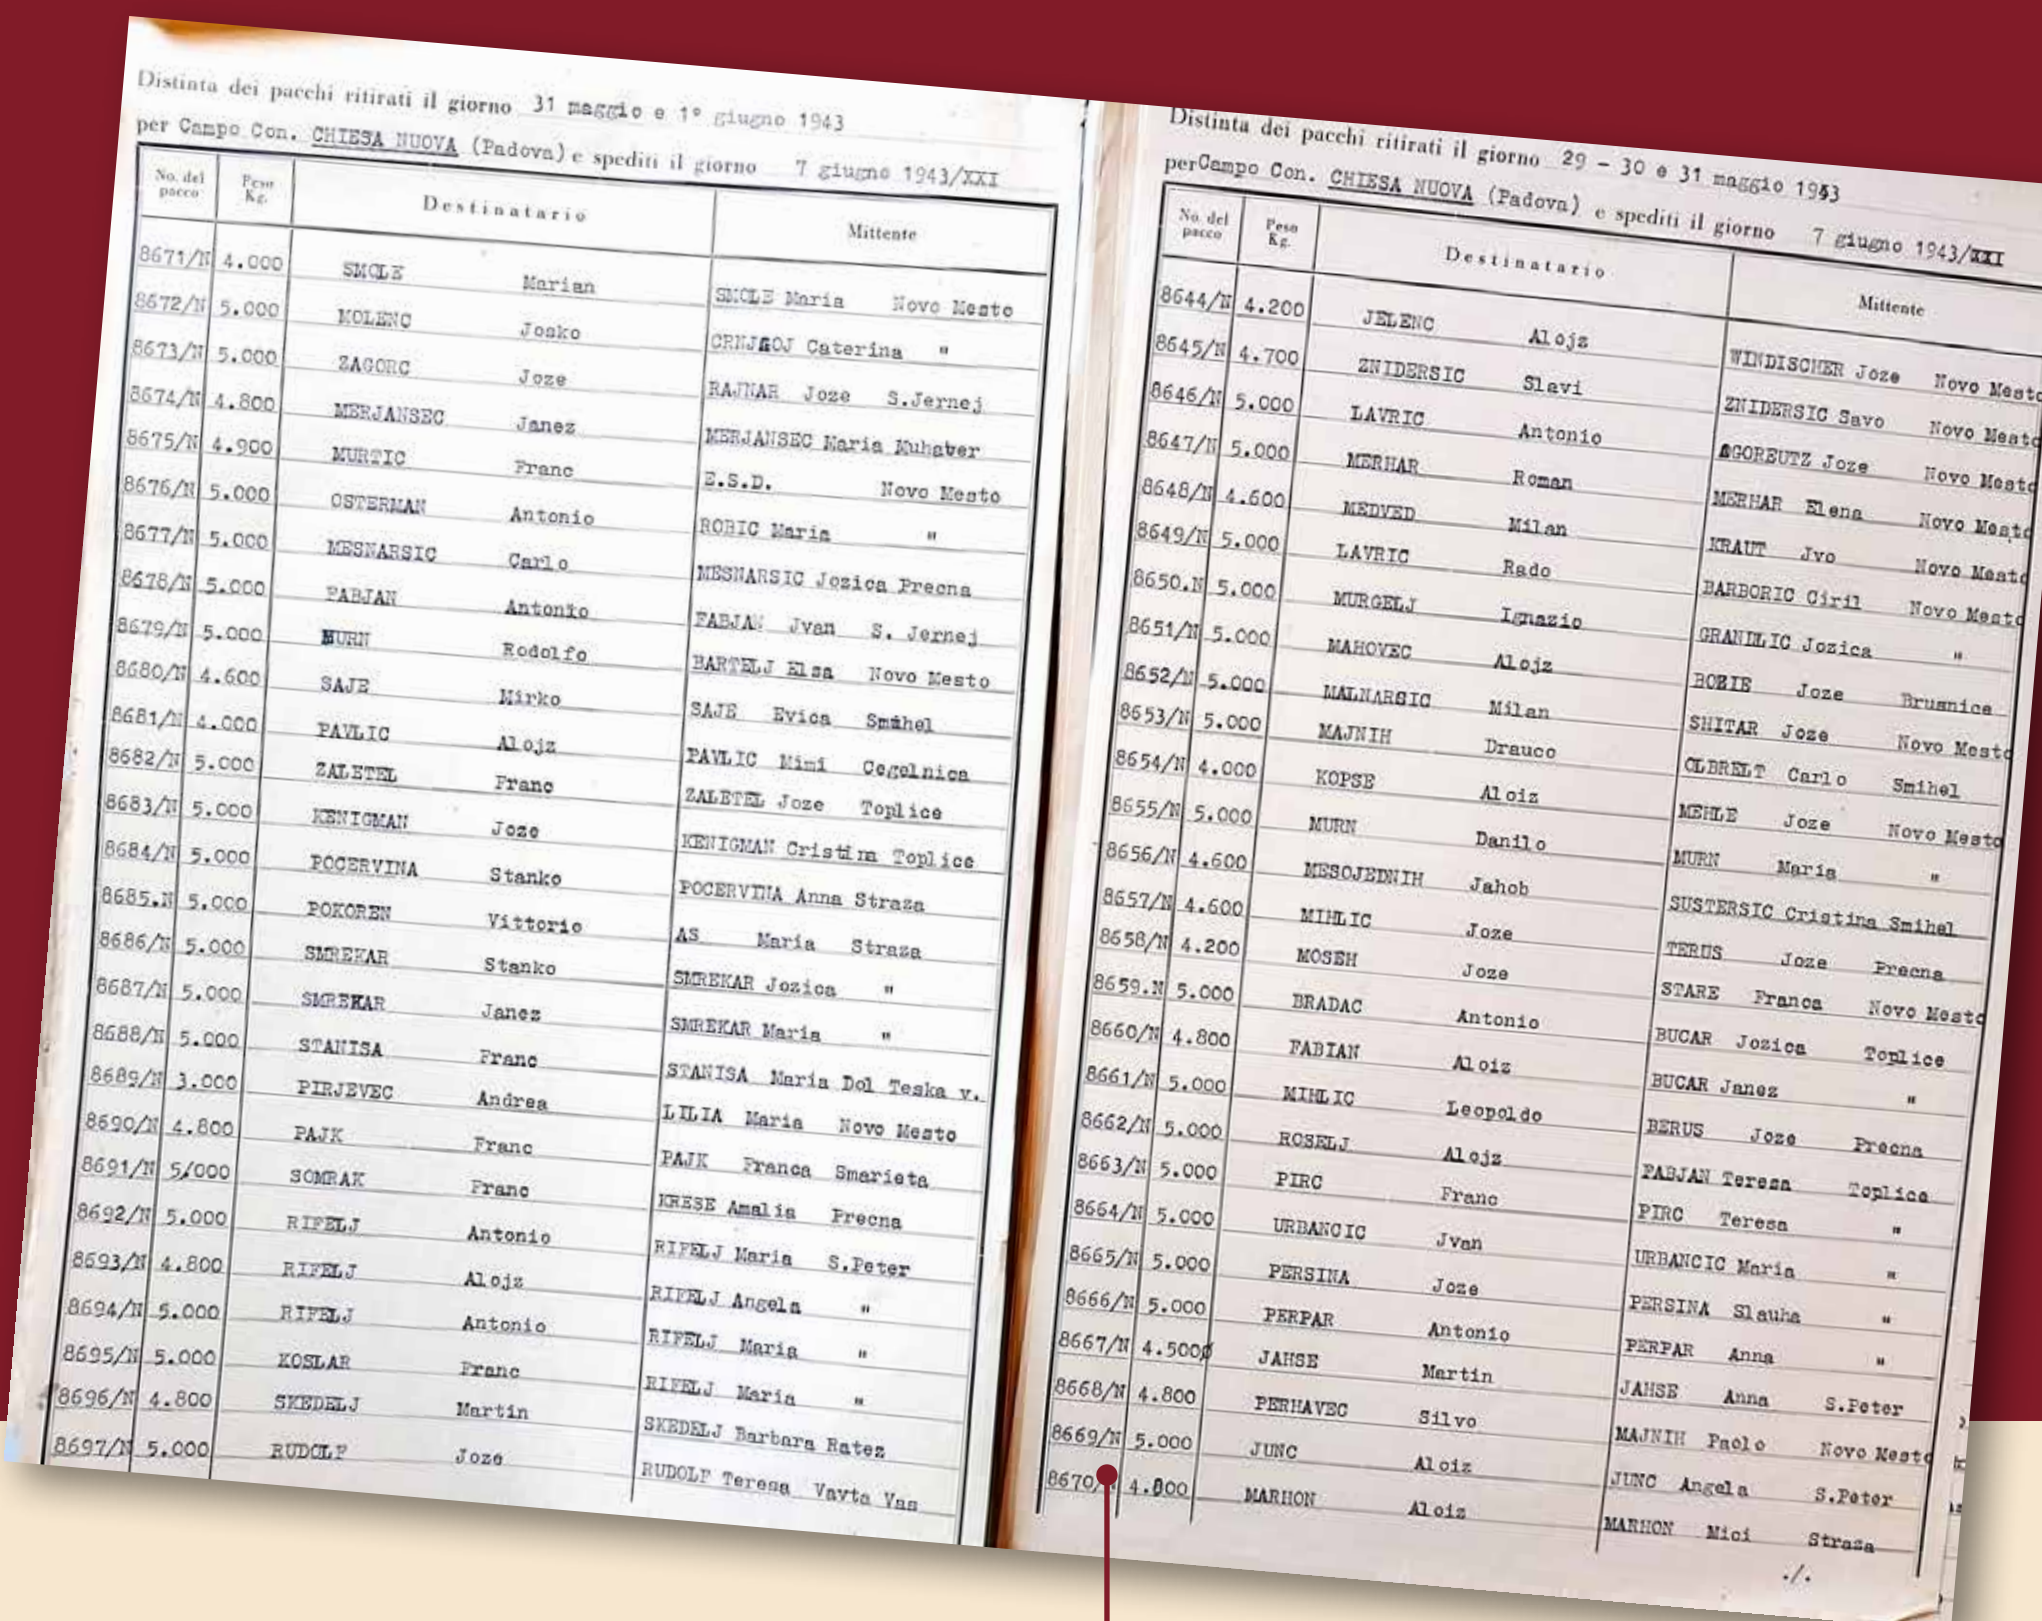 Distinta dei pacchi ritirati il giorno 31 maggio e 1º giugno 1943
per Campo Con. CHIESA NUOVA (Padova) e spediti il giorno 7 giugno 1943/XXI
No. del pacco Peso Kg. Destinatario Mittente
8671/N 4.000 SMOLE Marian SMOLE Maria Novo Mesto
8672/N 5.000 MOLENC Josko CRNJGOJ Caterina "
8673/N 5.000 ZAGORC Joze RAJNAR Joze S.Jernej
8674/N 4.800 MERJANSEC Janez MERJANSEC Maria Muhaber
8675/N 4.900 MURTIC Franc E.S.D. Novo Mesto
8676/N 5.000 OSTERMAN Antonio ROBIC Maria "
8677/N 5.000 MESNARSIC Carlo MESNARSIC Jozica Precna
8678/N 5.000 FABJAN Antonio FABJAN Jvan S. Jernej
8679/N 5.000 MURN Rodolfo BARTELJ Elsa Novo Mesto
8680/N 4.600 SAJE Mirko SAJE Evica Smihel
8681/N 4.000 PAVLIC Alojz PAVLIC Mimi Cegelnica
8682/N 5.000 ZALETEL Franc ZALETEL Joze Toplice
8683/N 5.000 KENIGMAN Joze KENIGMAN Cristina Toplice
8684/N 5.000 POCERVINA Stanko POCERVINA Anna Straza
8685.N 5.000 POKOREN Vittorio AS Maria Straza
8686/N 5.000 SMREKAR Stanko SMREKAR Jozica "
8687/N 5.000 SMREKAR Janez SMREKAR Maria "
8688/N 5.000 STANISA Franc STANISA Maria Dol Teska v.
8689/N 3.000 PIRJEVEC Andrea LILIA Maria Novo Mesto
8690/N 4.800 PAJK Franc PAJK Franca Smarieta
8691/N 5/000 SOMRAK Franc KRESE Amalia Precna
8692/N 5.000 RIFELJ Antonio RIFELJ Maria S.Peter
8693/N 4.800 RIFELJ Alojz RIFELJ Angela "
8694/N 5.000 RIFELJ Antonio RIFELJ Maria "
8695/N 5.000 KOSLAR Franc RIFELJ Maria "
8696/N 4.800 SKEDELJ Martin SKEDELJ Barbara Ratez
8697/N 5.000 RUDOLF Joze RUDOLF Teresa Vavta Vas
Distinta dei pacchi ritirati il giorno 29 - 30 e 31 maggio 1943
per Campo Con. CHIESA NUOVA (Padova) e spediti il giorno 7 giugno 1943/XXI
No. del pacco Peso Kg. Destinatario Mittente
8644/N 4.200 JELENC Alojz WINDISCHER Joze Novo Mesto
8645/N 4.700 ZNIDERSIC Slavi ZNIDERSIC Savo Novo Mesto
8646/N 5.000 LAVRIC Antonio GOREUTZ Joze Novo Mesto
8647/N 5.000 MERHAR Roman MERHAR Elena Novo Mesto
8648/N 4.600 MEDVED Milan KRAUT Jvo Novo Mesto
8649/N 5.000 LAVRIC Rado BARBORIC Ciril Novo Mesto
8650.N 5.000 MURGELJ Ignazio GRANDLIC Jozica "
8651/N 5.000 MAHOVEC Alojz BOZIE Joze Brusnice
8652/N 5.000 MALNARSIC Milan SHITAR Joze Novo Mesto
8653/N 5.000 MAJNIH Drauco OLBRELT Carlo Smihel
8654/N 4.000 KOPSE Aloiz MEHLE Joze Novo Mesto
8655/N 5.000 MURN Danilo MURN Maria "
8656/N 4.600 MESOJEDNIH Jahob SUSTERSIC Cristina Smihel
8657/N 4.600 MIHLIC Joze TERUS Joze Precna
8658/N 4.200 MOSEH Joze STARE Franca Novo Mesto
8659.N 5.000 BRADAC Antonio BUCAR Jozica Toplice
8660/N 4.800 FABIAN Aloiz BUCAR Janez "
8661/N 5.000 MIHLIC Leopoldo BERUS Joze Precna
8662/N 5.000 ROSELJ Alojz FABJAN Teresa Toplice
8663/N 5.000 PIRC Franc PIRC Teresa "
8664/N 5.000 URBANCIC Jvan URBANCIC Maria "
8665/N 5.000 PERSINA Joze PERSINA Slauha "
8666/N 5.000 PERPAR Antonio PERPAR Anna "
8667/N 4.500 JAHSE Martin JAHSE Anna S.Peter
8668/N 4.800 PERHAVEC Silvo MAJNIH Paolo Novo Mesto
8669/N 5.000 JUNC Aloiz JUNC Angela S.Peter
8670/ 4.000 MARHON Aloiz MARHON Mici Straza
./.